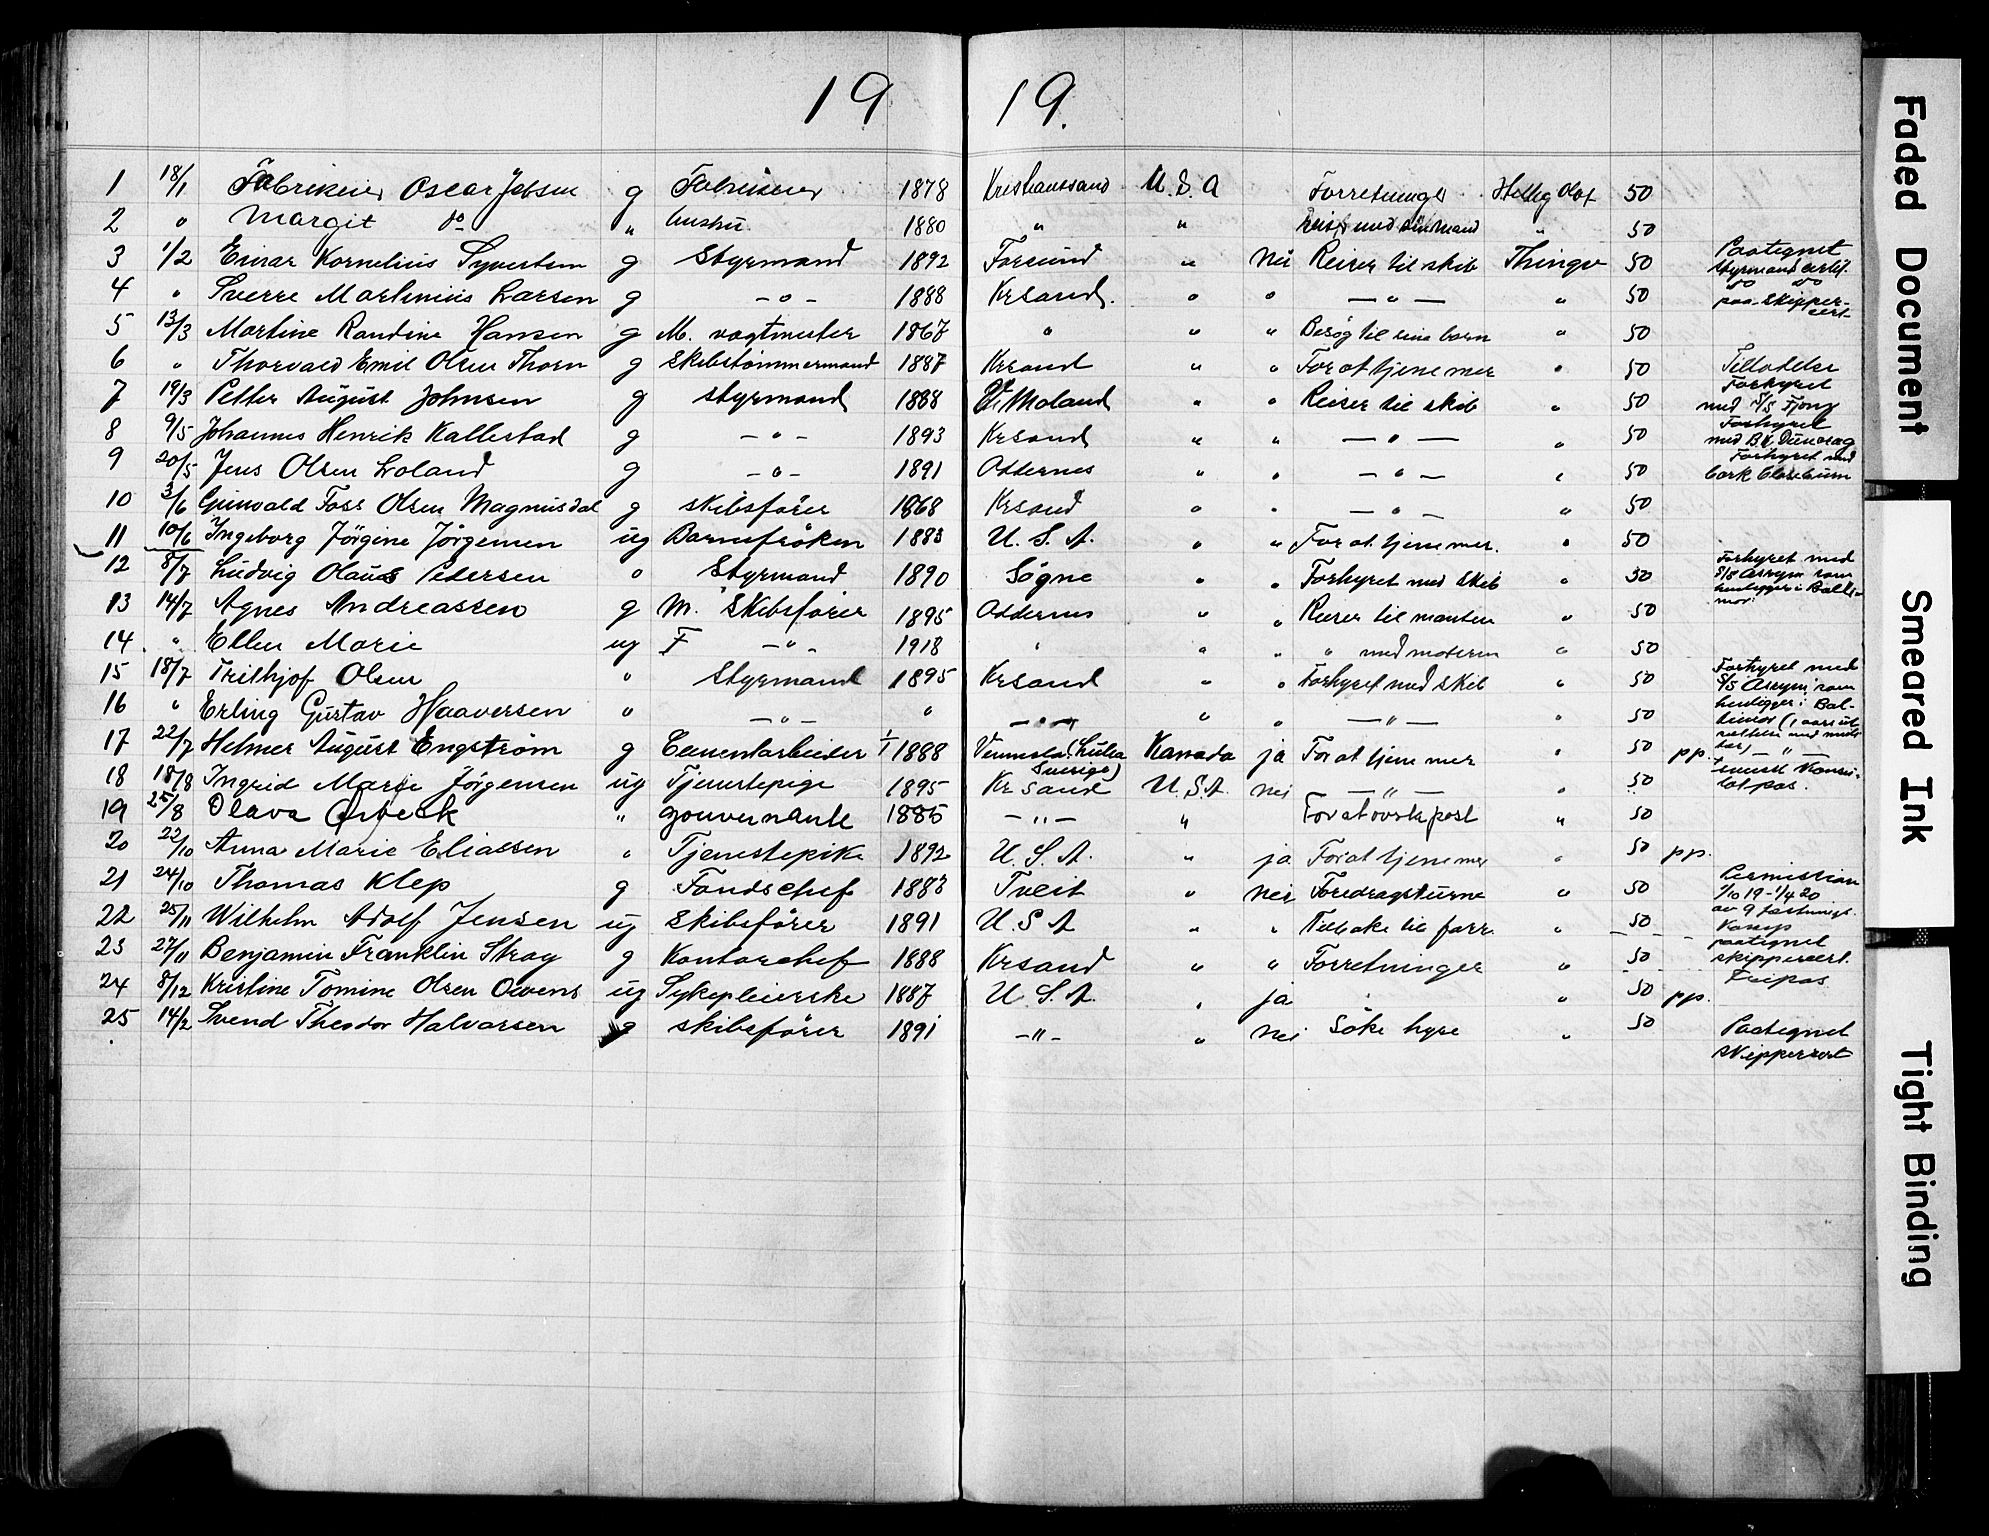 19 19.
1 18/1 Fabrikeier Oscar Jebsen g Fabrikeier 1878 Kristianssand U.S.A Forretninger Hellig Olaf 50
2 " Margit do " hustru 1880 " " Reise med sin mand " 50
3 1/2 Einar Kornelius Syvertsen g Styrmand 1892 Farsund " nei Reiser til skib Thingv 50 Paategnet styrmand certif.
4 " Sverre Martinius Larsen g -"- 1888 Krsand. " " -"- " 50 do do paa skipper-cert.
5 13/3 Martine Randine Hansen g M. vagtmester 1867 " " " Besøg til sine barn " 50
6 " Thorvald Emil Olsen Thorn g Skibstømmermand 1887 Krsand " " For at tjene mer " 50 Tilladelse
7 19/3 Petter August Johnsen g styrmand 1888 V. Moland " " Reiser til skib " 50 Forhyret med S/S Fjong
8 9/5 Johannes Henrik Kallestad g -"- 1893 Krsand " " -"- " 50 Forhyret med Bk
9 20/5 Jens Olsen Loland g -"- 1891 Oddernes " " -"- " 50 Forhyret med bark
10 3/6 Gunvald Foss Olsen Magnusdal g skibsfører 1868 Krsand " " -"- " 50
11 10/6 Ingeborg Jörgine Jörgensen ug Barnefröken 1883 U.S.A. " " For at tjene mer. " 50
12 8/7 Ludvig Olaus Pedersen " Styrmand 1890 Søgne " " Forhyret med skib " 50 Forhyret med S/S Assym som henligger i Baltimor
13 14/7 Agnes Andreassen g M. Skibsfører 1895 Oddernes " " Reiser til manden " 50
14 " Ellen Marie ug F -"- 1918 " " " " med moderen " 50
15 18/7 Frithjof Olsen " Styrmand 1895 Krsand " " Forhyret med skib " 50 Forhyret med S/S Assym som
16 " Erling Gustav Haaversen " -"- " -"- " " -"- " 50 henligger i Baltimor (1 aars
17 22/7 Helmer August Engström g Cementarbeider 1/1 1888 Vennesla (Lulea Sverige) Kanada ja For at tjene mer " 50 pp. -"-
18 18/8 Ingrid Marie Jörgensen ug Tjenstepige 1895 Kr sand U.S.A. nei -"- " 50 svensk Konsulatpas.
19 25/8 Olava Örbeck " gouvernante 1885 -"- " For at ovrta post " 50
20 22/10 Anna Marie Eliassen " Tjenestepike 1892 U.S.A. " ja For at tjene mer " 50 pp.
21 24/10 Thomas Klep g Fondschef 1883 Tveit " nei Foredragsturne " 50 Permission 1/10 19 - 1/4 20
22 25/11 Wilhelm Adolf Jensen ug Skibsfører 1891 U.S A " " Tilbake til farr. " 50 av 9 festnings. Komp
23 27/11 Benjamin Franklin Stray g Kontorchef 1888 Krsand " " Forretninger " 50 paategnet skippercert.
24 8/12 Kristine Tomine Olsen Owens ug Sykepleierske 1887 U.S.A. " ja " 50 pp. Fripas
25 14/2 Svend Theodor Halvorsen g skibsfører 1891 -"- " nei Söke hyre " 50 Paategnet skippercert
Faded Document
Smeared Ink
Tight Binding